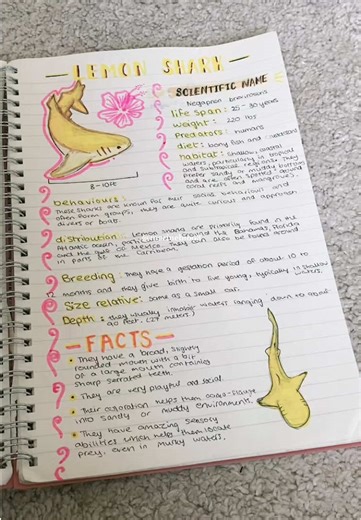 LEMON SHARK
SCIENTIFIC NAME
Negaprion brevirostris
life span: 25 - 30 years
weight: 220 lbs
Predators: humans
diet: bony fish and
habitat: shallow, coastal
waters, particularly in tropical
and subtropical regions. They
prefer sandy or muddy bottoms
and are often spotted around
coral reefs and mangroves.
8-10FT
behaviours:
These sharks are known for their social behaviour and
often form groups, they are quite curious and approach
divers or boats.
distribution: Lemon sharks are primarily found in the
Atlantic ocean, particularly around the Bahamas, Florida
and the gulf of Mexico. They can also be found around
in parts of the Carribean.
Breeding: They have a gestation period of about 10 to
12 months and they give birth to live young, typically in shallow
waters.
Size relative: same as a small car.
Depth: they usually waters ranging down to around
90 feet. (27 meters.)
-FACTS-
• They have a broad,
rounded mouth with a bit
of a large mouth containing
sharp serrated teeth.
• They are very playful and social.
• Their coloration helps them
into sandy or muddy environments.
• They have amazing sensory
abilities which help them locate
prey, even in murky waters.